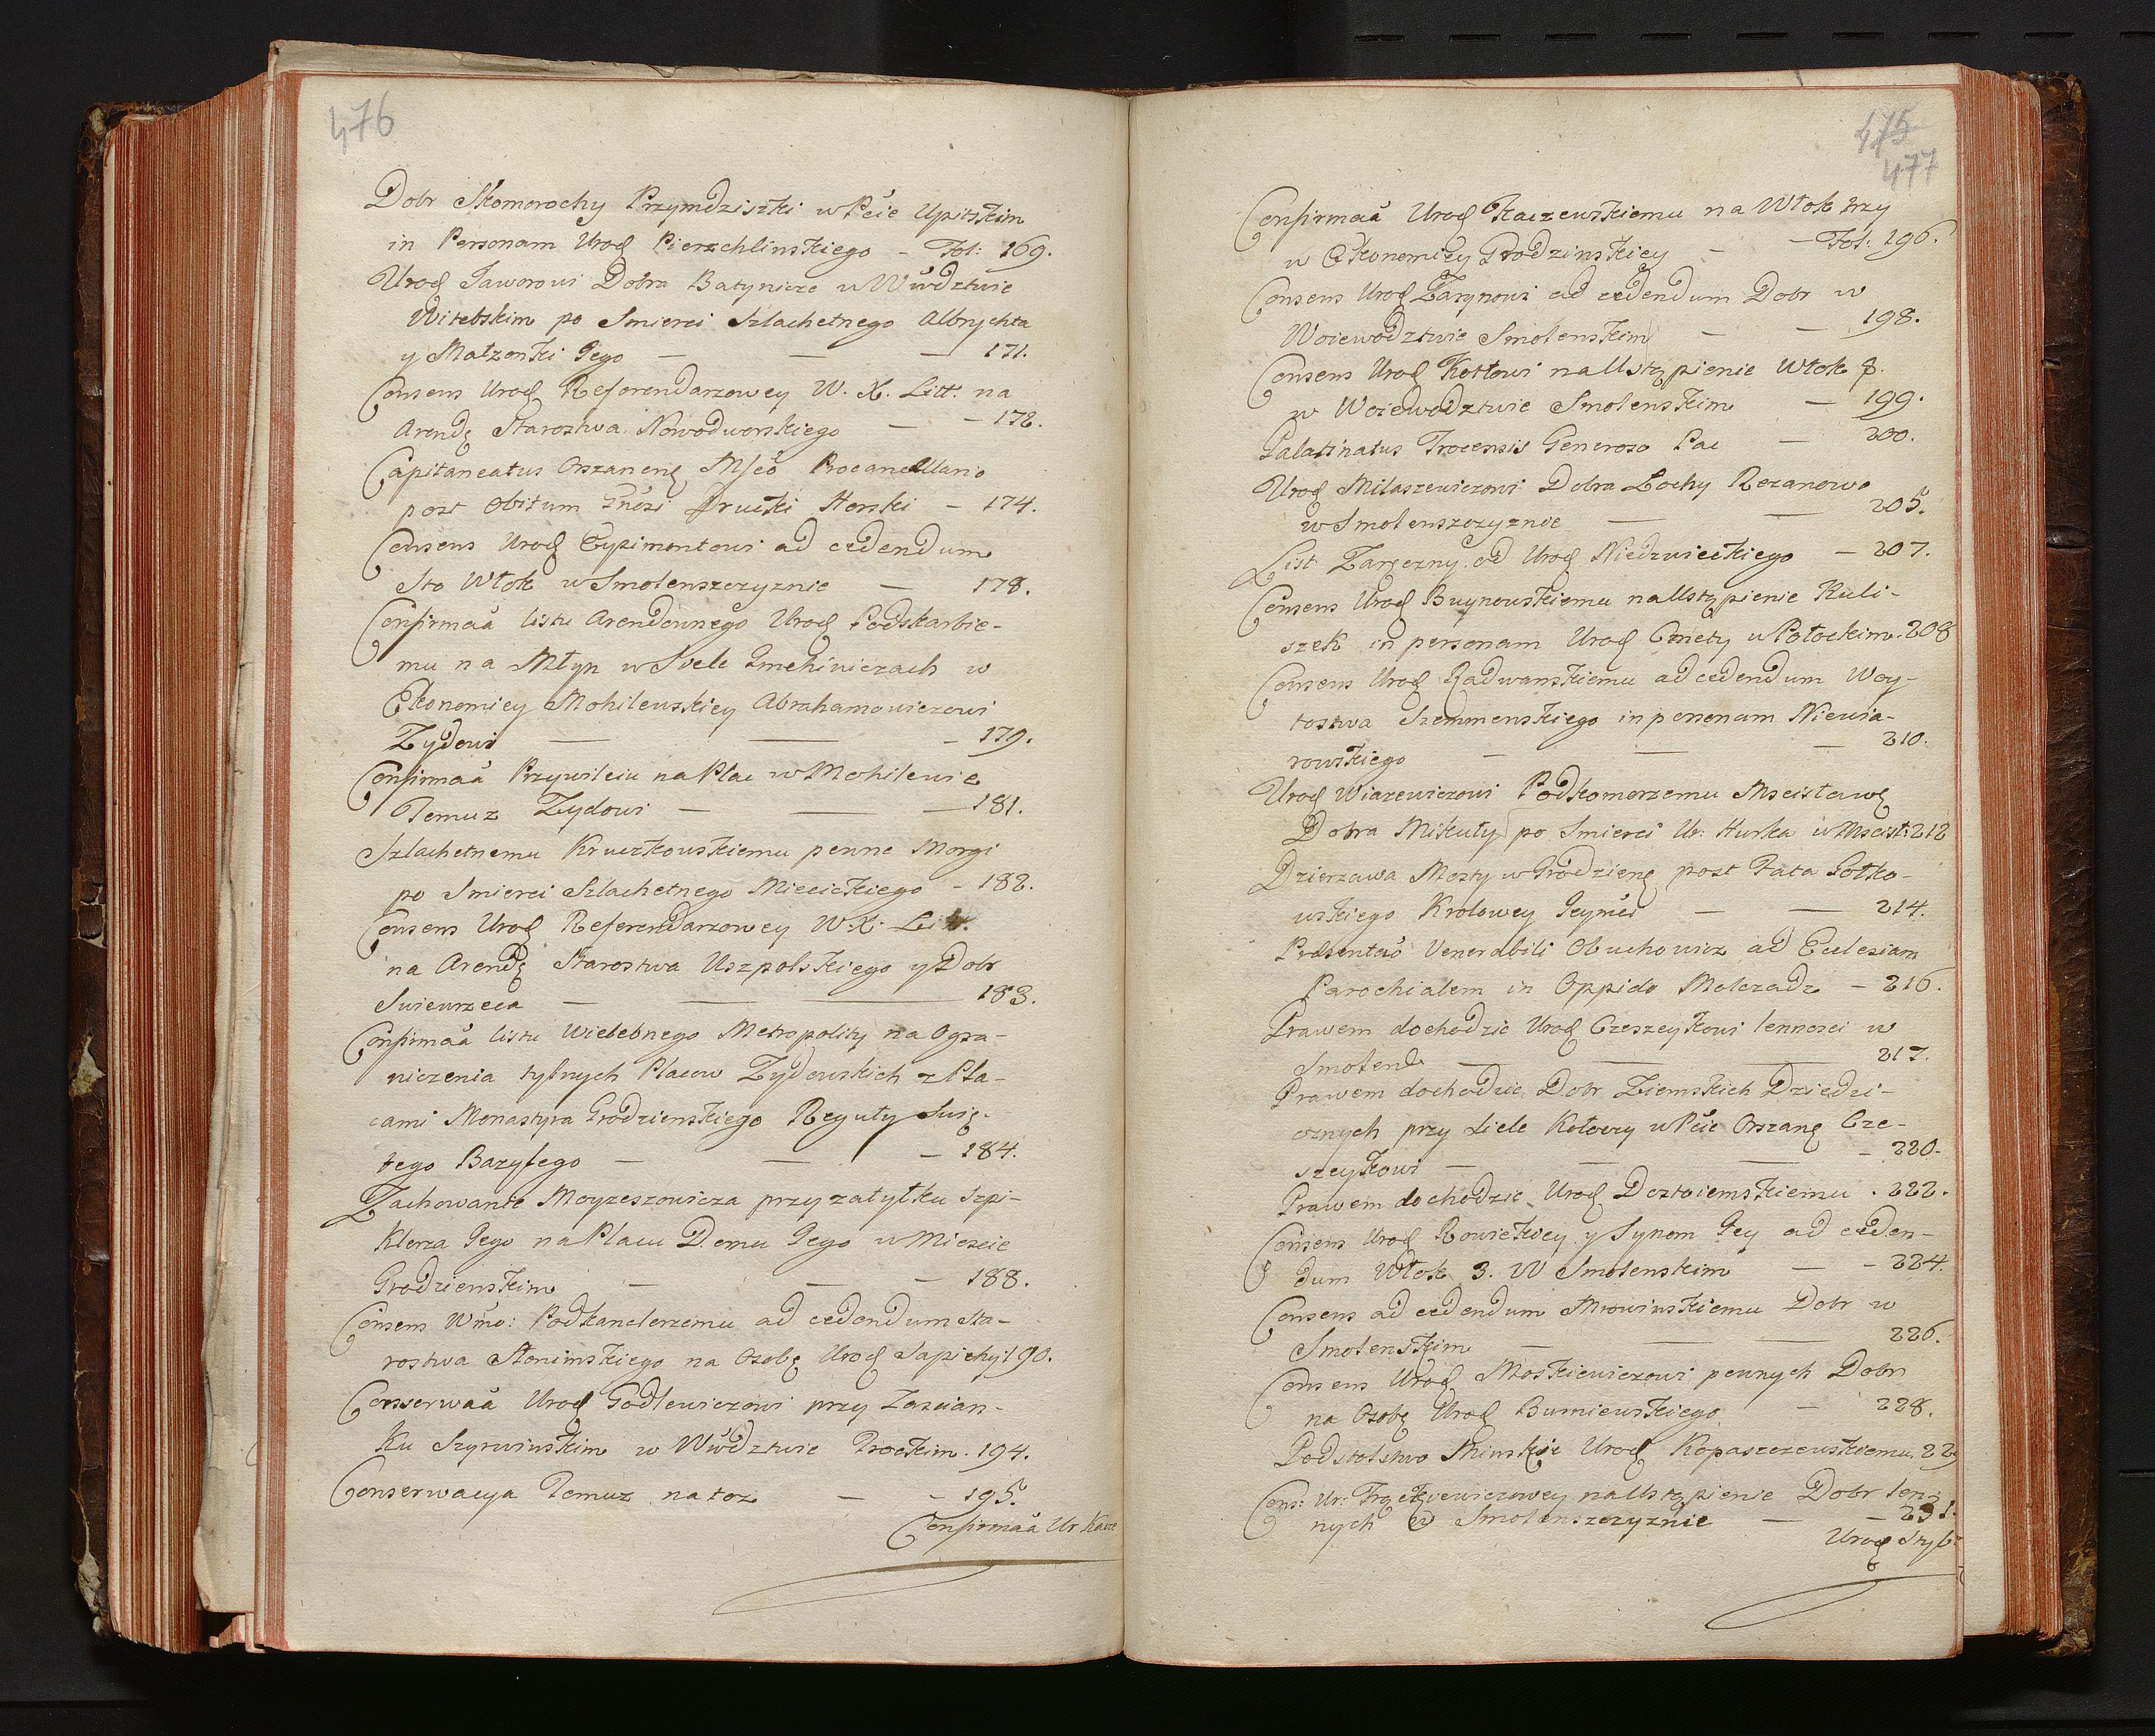 476
Dobr Skomorochy Przymdziszki w Pcie Upitskim
in Personam Urod Pierzchlinskiego - Fol: 169.
Urod Jaworowi Dobra Batynicze w Wwdztwie
Witebskim po Smierci Szlachetnego Albrychta
y Małzonki Jego — 171.
Consens Urod Referendarzowey W. X. Litt. na
Arendę Starostwa Nowodworskiego — 172.
Capitaneatus Orszanen Mscō
post Obitum Gnosi Drucki Horski - 174.
Consens Urod Gypimontowi ad cedendum
Sto Włok w Smolenszczyznie — 178.
Confirmaā listu Arendownego Urod Podskarbie-
mu na Młyn w Siele Hmehiniczach w
Ekonomiey Mohilewskiey Abrahamowiczowi
Zydowi — 179.
Confirmaā Przywileiu na Plac w Mohilewie
Temuz Zydowi — 181.
Szlachetnemu Kruczkowskiemu pewne Morgi
po Smierci Szlachetnego Miecickiego - 182.
Consens Urod Referendarzowey W. X. Litt.
na Arendę Starostwa Uszpolskiego y Dobr
Swiewrzeca — 183.
Confirmaā listu Wielebnego Metropolity na Ogra-
niczenia tylnych Placow Zydowskich z Pla-
cami Monastyra Grodzienskiego Reguły Swię-
tego Bazylego — 184.
Zachowanie Moyzeszowicza przy zatyłku Szpi-
klerza Jego na Placu Domu Jego w Miescie
Grodzienskim — 188.
Consens Wmo: Podkanclerzemu ad cedendum Sta-
rostwa Słonimskiego na Osobę Urod Sapiehy 190.
Conserwaā Urod Godlewiczowi przy Zascian-
ku Szyrwinskim w Wwdztwie Trockim. 194.
Conserwacya Temuz na toz — 195.
Confirmaā Ur. Kacze
475
477
Confirmaā Urod Kaczewskiemu na Włok trzy
w Ekonomiey Grodzinskiey — Fol: 196.
Consens Urod Zarynowi ad cedendum Dobr w
Woiewodztwie Smolenskim — 198.
Consens Urod Kotłowi na Ustąpienie Włok 8.
w Woiewodztwie Smolenskim — 199.
Palatinatus Trocensis Generoso Pac — 200.
Urod Milaszewiczowi Dobra Lochy Rezanowo
w Smolenszczyznie — 205.
List Zaręczny od Urod Niedzwieckiego — 207.
Consens Urod Buynowskiemu na Ustąpienie Kuli-
szek in personam Urod Gniety w Połockim. 208
Consens Urod Radwanskiemu ad cedendum Woy-
tostwa Szemmenskiego in personam Niewia-
rowskiego — 210.
Urod Wiazewiczowi Podkomorzemu Mscisławę
Dobra Mikuły po Smierci Ur: Hurka w Mscist: 212
Dzierzawa Mosty w Grodzienę post Fata Sołko-
wskiego Krolowey Jeymci — 214.
Præsentaō Venerabili Obuchowicz ad Eclesiam
Parochialem in Oppido Molczadz — 216.
Prawem dochodzic Urod Czeszeykowi lennosci w
Smolend — 217.
Prawem dochodzic Dobr Ziemskich Dziedzi-
cznych przy Siele Kołoczy w Pcie Orszanę Cze-
szeykowi — 220.
Prawem dochodzic Urod Dostoiemskiemu. 222.
Consens Urod Rowickiey y Synom Jey ad ceden-
dum Włok 3. W Smolenskim — 224.
Consens ad cedendum Mrowinskiemu Dobr w
Smolenskim — 226.
Consens Urod Moskiewiczowi pewnych Dobr
na Osobę Urod Burniewskiego — 228.
Podstolstwo Minskie Urod Kopaszczewskiemu. 229
Cons: Ur: Frąckiewiczowey na Ustąpienie Dobr len-
nych w Smolenszczyznie — 231.
Urod Szyb